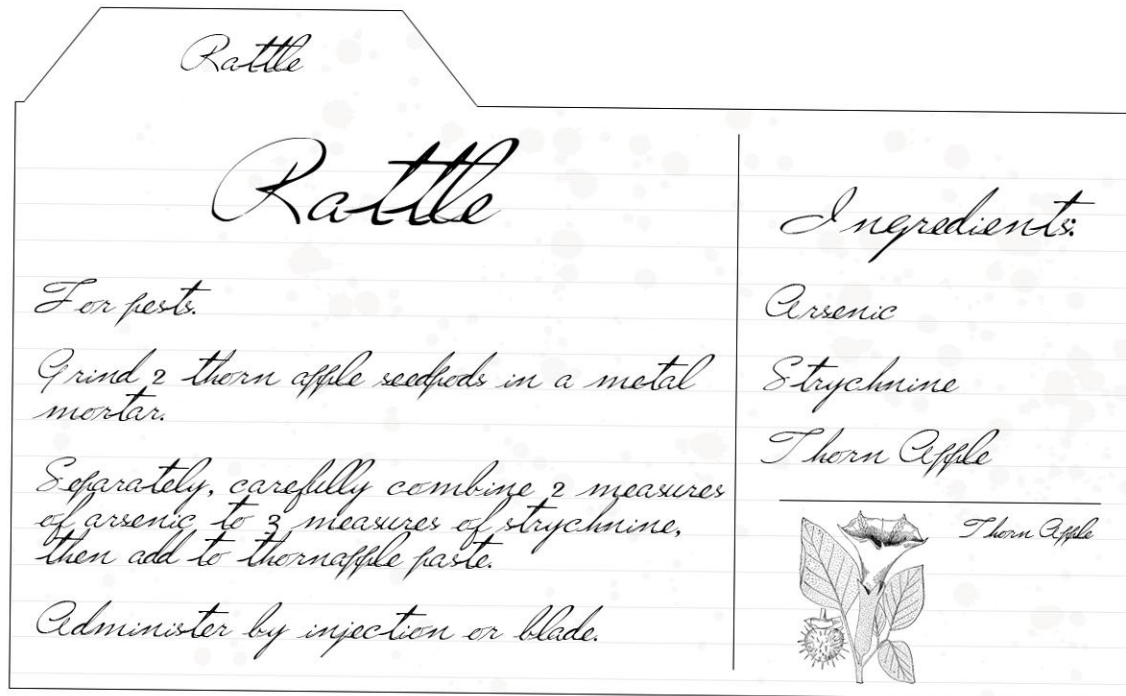 Rattle
Rattle
For pests.
Grind 2 thorn apple seedpods in a metal
mortar.
Separately, carefully combine 2 measures
of arsenic to 3 measures of strychnine,
then add to thornapple paste.
Administer by injection or blade.
Ingredients:
Arsenic
Strychnine
Thorn Apple
Thorn Apple